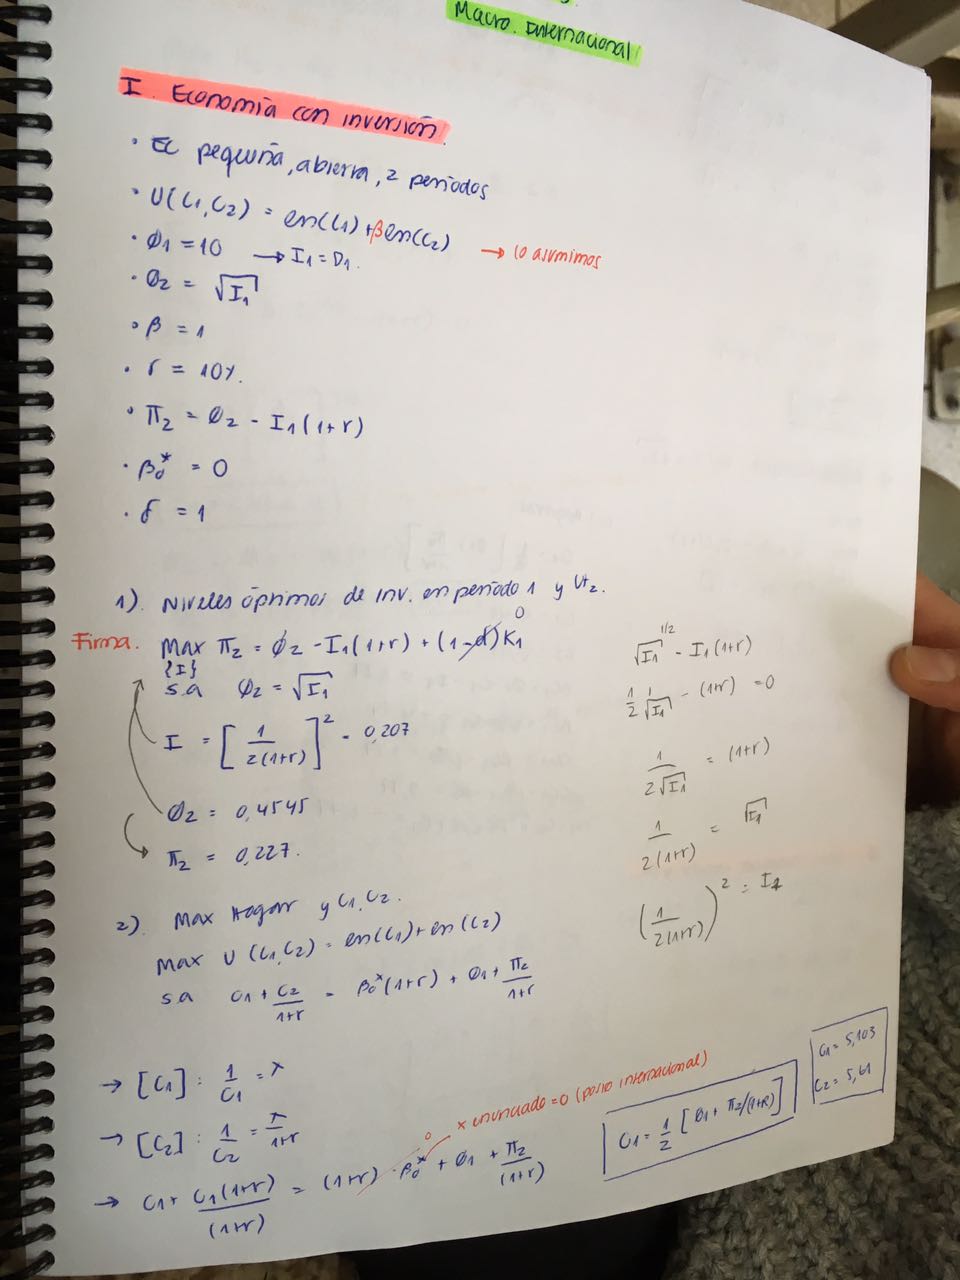 Macro. Internacional
I. Economía con inversión.
• Ec pequeña, abierta, 2 periodos
• U(C1,C2) = en(C1)+βen(C2) → lo asumimos
• Ø1 = 10 → I1 = D1.
• Ø2 = √I1
• β = 1
• r = 10%.
• π2 = Ø2 - I1(1+r)
• β0* = 0
• δ = 1
1). Niveles óptimos de inv. en periodo 1 y Ut2.
Firma. Max π2 = Ø2 - I1(1+r) + (1-δ)K1 0
{I}
s.a Ø2 = √I1
I = [1/2(1+r)]² = 0,207
Ø2 = 0,4545
π2 = 0,227.
√I1 1/2 - I1(1+r)
1/2 1/√I1 - (1+r) = 0
1/2√I1 = (1+r)
1/2(1+r) = √I1
(1/2(1+r))² = I1
2). Max Hogar y C1, C2.
Max U (C1,C2) = en(C1)+en(C2)
s.a C1 + C2/1+r = β0*(1+r) + Ø1 + π2/1+r
→ [C1] : 1/C1 = λ
→ [C2] : 1/C2 = λ/1+r
x enunciado=0 (posic internacional)
→ C1 + C1(1+r)/(1+r) = (1+r) · β0* 0 + Ø1 + π2/(1+r)
C1 = 1/2 [Ø1 + π2/(1+R)]
C1 = 5,103
C2 = 5,61